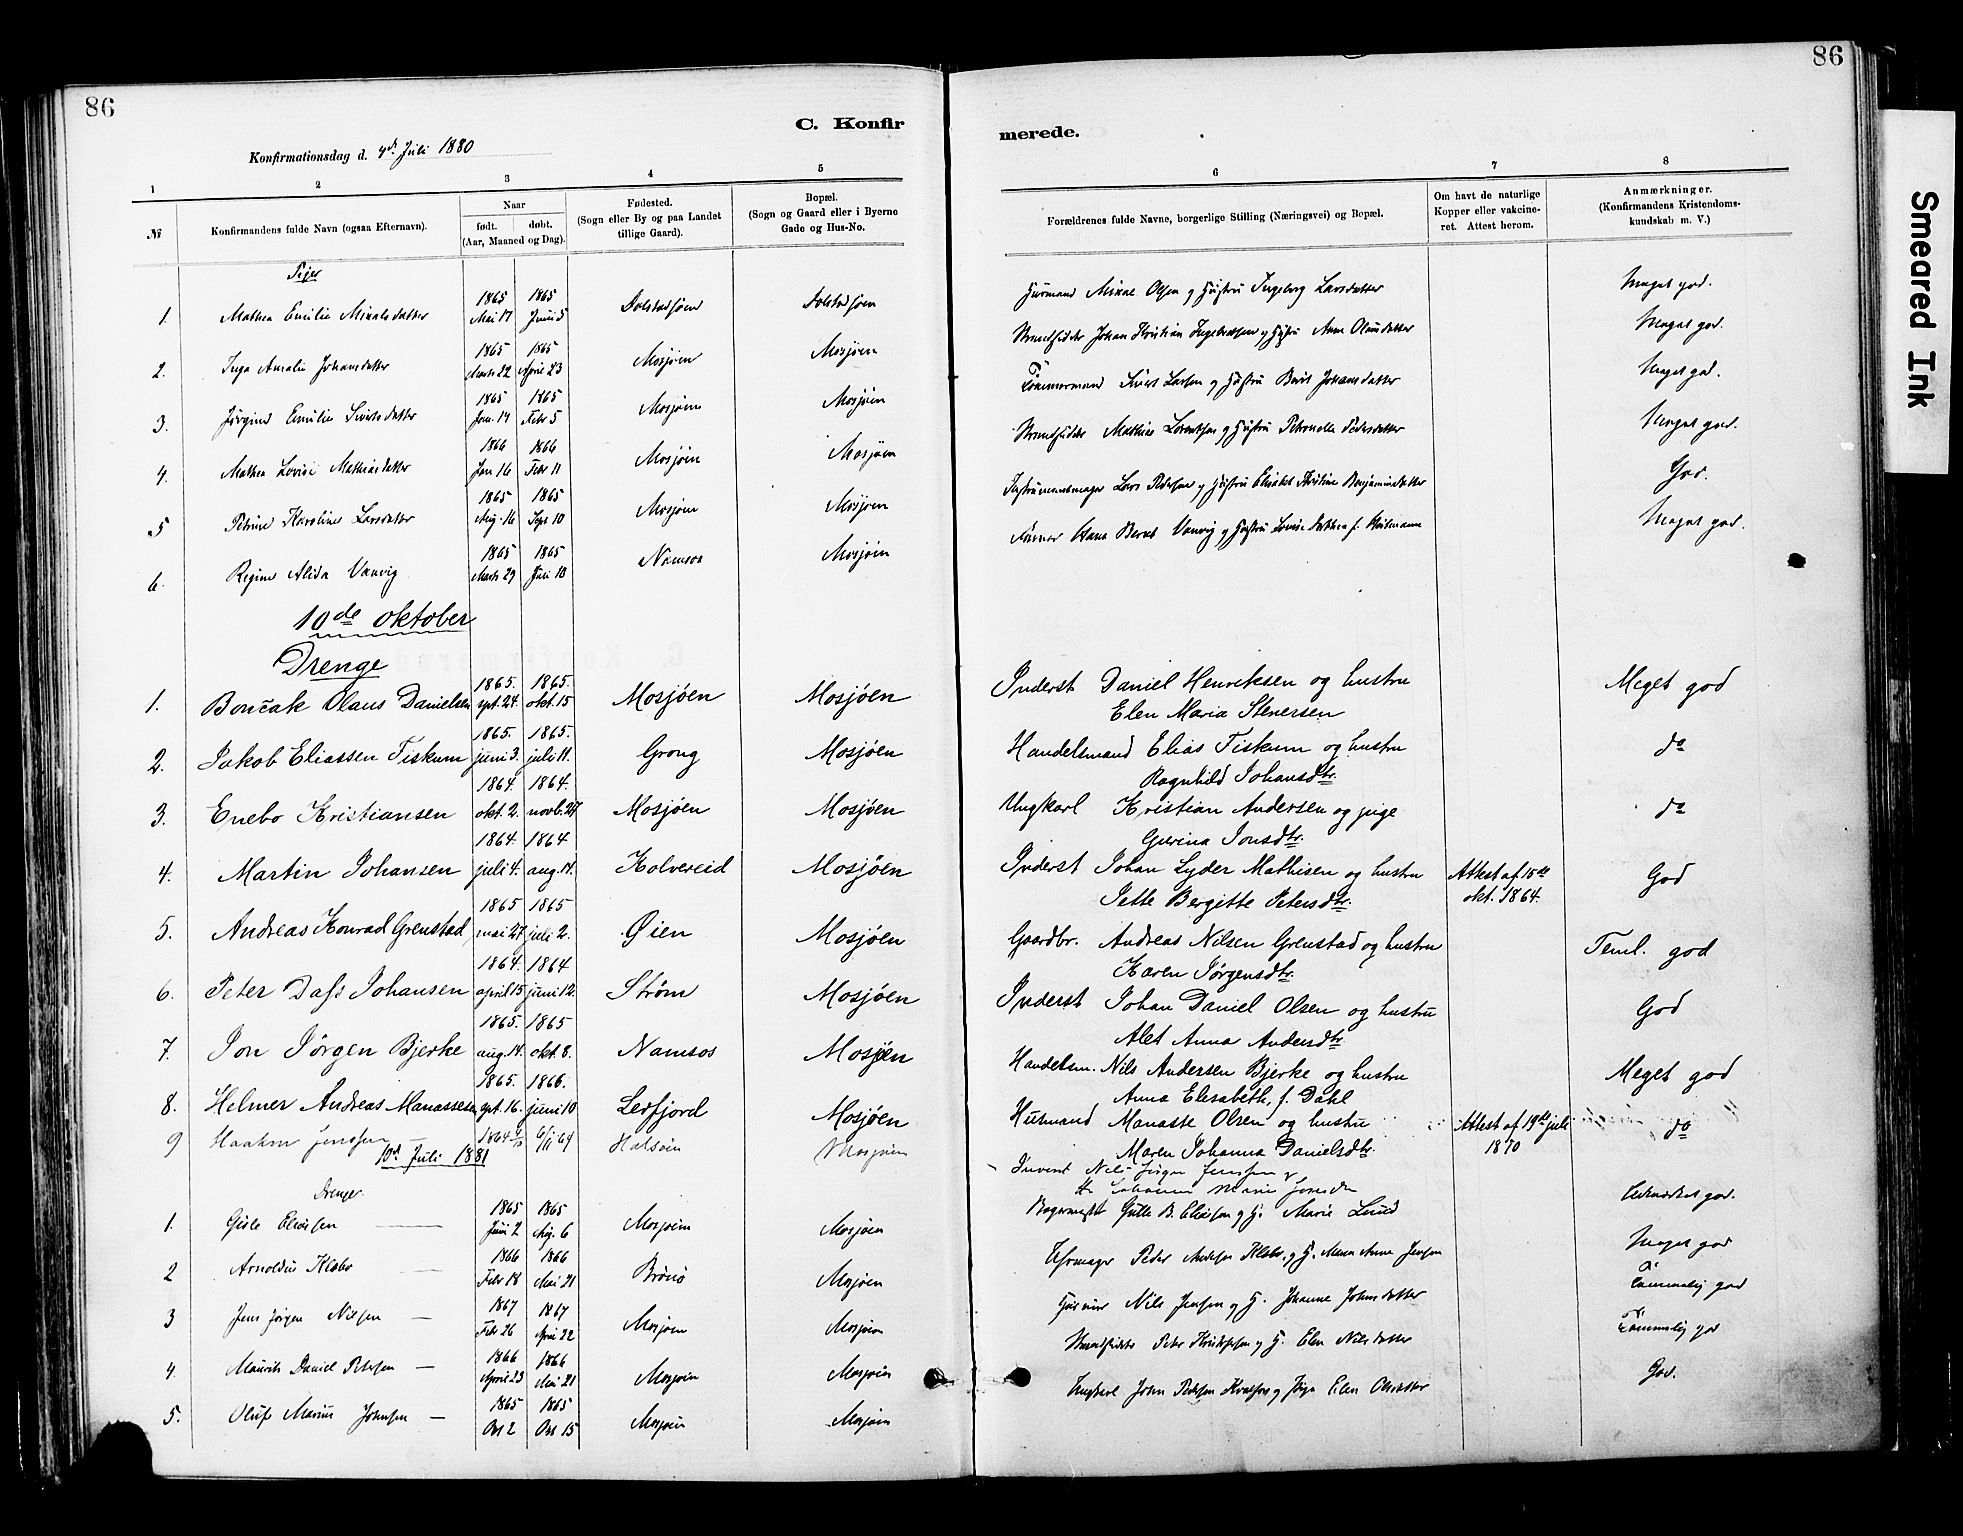 86
86
C. Konfir
merede.
Konfirmationsdag d. 4de Juli 1880
1 2 3 4 5 6 7 8
№ Konfirmandens fulde Navn (ogsaa Efternavn). Naar født. døbt. (Aar, Maaned og Dag). Fødested. (Sogn eller By og paa Landet tillige Gaard). Bopæl. (Sogn og Gaard eller i Byerne Gade og Hus-No. Forældrenes fulde Navne, borgerlige Stilling (Næringsvei) og Bopæl. Om havt de naturlige Kopper eller vakcineret. Attest herom. Anmærkninger. (Konfirmandens Kristendomskundskab m. V.)
Piger
1. Mathea Emilie Mikalsdatter 1865 Mai 17 1865 Juni 5 Dolstadsjøen Dolstadsjøen Huusmand Mikal Olsen og Hustru Ingeborg Larsdatter Meget god.
2. Inga Amalia Johansdatter 1865 Marts 22 1865 April 23 Mosjøen Mosjøen Strandsidder Johan Kristian Ingebretsen og Hustru Anne Olausdatter Meget god.
3. Jørgine Emilie Sivertsdatter 1865 Jan. 14 1865 Febr 5 Mosjøen Mosjøen Tømmermand Sivert Larsen og Hustru Berit Johansdatter Meget god.
4. Mathea Lovise Mathiasdatter 1866 Jan 16 1866 Febr 11 Mosjøen Mosjøen Strandsidder Mathias Lorentsen og Hustru Petronelle Pedersdatter Meget god.
5 Petrine Karoline Larsdatter 1865 Aug. 16 1865 Sept 10 Mosjøen Mosjøen Instrumentmager Lars Pedersen og Hustru Elisabet Kristine Benjaminsdatter God.
6. Regine Alida Vanvig 1865 Marts 29 1865 Juli 10 Namsos Mosjøen Hans Bernt Vanvig og Hustru Lovise f. Meget god.
10de oktober
Drenge
1. Olaus Danielsen 1865. spt. 24. 1865. okt. 15 Mosjøen Mosjøen Inderst Daniel Henriksen og hustru Meget god
Elen Maria Stenersen
2. Jakob Eliassen Fiskum 1865. juni 3. 1865. juli 11. Grong Mosjøen Handelsmand Elias Fiskum og hustru do
Ragnhild Johansdtr.
3. Enebo Kristiansen 1864. okt. 2. 1864. novb. 27 Mosjøen Mosjøen Ungkarl Kristian Andersen og pige do
Gurina Jonsdtr.
4. Martin Johansen 1864. juli 4. 1864 aug. 14. Kolvereid Mosjøen Inderst Johan Lyder Mathisen og hustru Attest af 15de God
Jette Bergitte Petersdtr. okt. 1864.
5. Andreas Konrad Grenstad 1865 mai 27 1865 juli 2. Øien Mosjøen Gaardbr. Andreas Nilsen Grenstad og hustru Teml. god
Karen Jørgensdtr.
6. Peter Dass Johansen 1864. april 15 1864 juni 12. Strøm Mosjøen Inderst Johan Daniel Olsen og hustru God
Alet Anna Andersdtr.
7. Jon Jørgen Bjerke 1865. aug. 14. 1865 okt. 8. Namsos Mosjøen Handelsm. Nils Andersen Bjerke og hustru Meget god
Anna Elisabeth, f. Dahl
8. Helmer Andreas Manassesen 1865. spt. 16. 1866. juni 10 Leifjord Mosjøen Husmand Manasse Olsen og hustru Attest af 19de juli do
Maren Johanna Danielsdtr. 1870
9 Haakon Jenssen 1864 6/11 64 Mosjøen Nils Jørgen Jenssen
10de Juli 1881
Drenge
1. Gisle Eliassen 1865 Juni 2 1865 Aug. 6 Mosjøen Mosjøen Bagermester Gulle B. Eliassen og H. Marie Lund Udmærket god.
2 Arnoldus Klabo 1866 Febr 18 1866 Mai 21 Brønø Mosjøen Uhrmager Peder Andersen Klabo og H. Maren Anna Jensen Meget god
3 Jens Jørgen Nilsen 1867 Febr 26 1867 April 22 Mosjøen Mosjøen Nils Jensen og H. Johanne Johnsdatter Tømmelig god
4. Maurits Daniel Petersen 1866 April 23 1866 Mai 21 Mosjøen Mosjøen Strandsidder Peter Kristophersen og H. Elen Nilsdatter Tømmelig god
5. Oluf Marius Johnsen 1865 Oct 2 1865 Oct 15 Mosjøen Mosjøen Ungkarl John Pedersen og Pige Elen Olsdatter God.
Smeared Ink